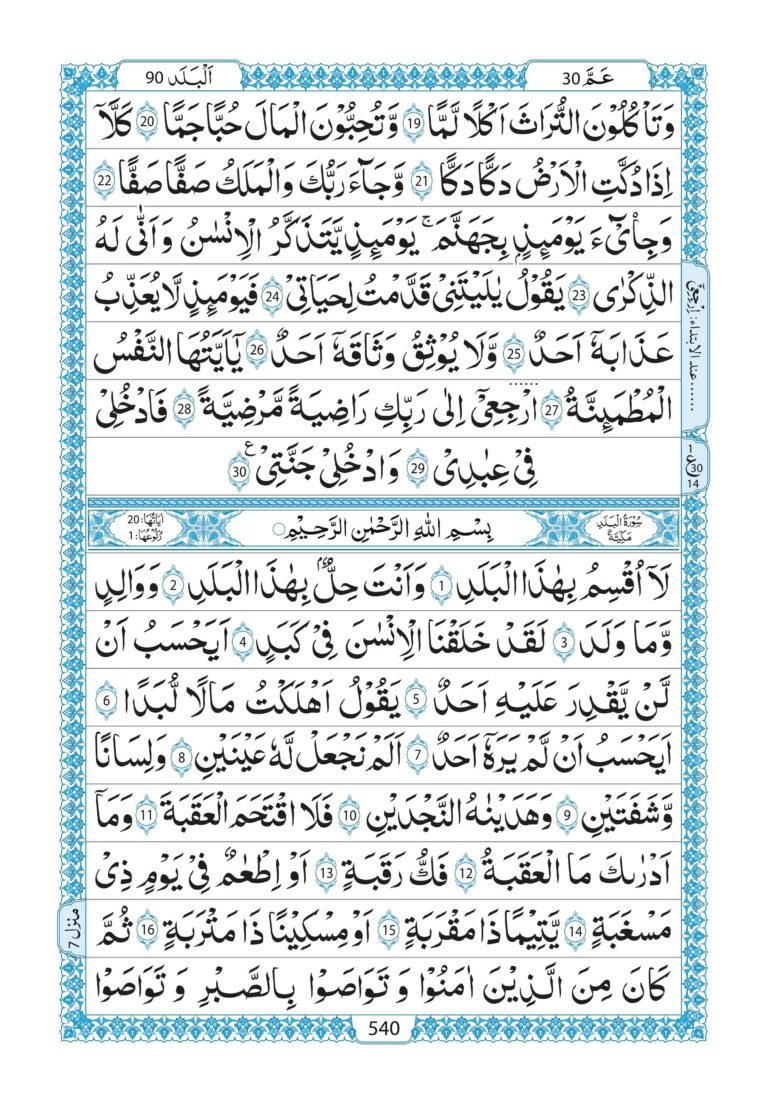 عَمَّ 30
اَلْبَلَد 90
وَتَاْكُلُوْنَ التُّرَاثَ اَكْلًا لَّمًّا 19 وَّتُحِبُّوْنَ الْمَالَ حُبًّا جَمًّا 20 كَلَّاۤ
اِذَا دُكَّتِ الْاَرْضُ دَكًّا دَكًّا 21 وَّجَآءَ رَبُّكَ وَالْمَلَكُ صَفًّا صَفًّا 22
وَجِایْٓءَ يَوْمَئِذٍۭ بِجَهَنَّمَ ۚ يَوْمَئِذٍ يَّتَذَكَّرُ الْاِنْسٰنُ وَاَنّٰى لَهُ
الذِّكْرٰى 23 يَقُوْلُ يٰلَيْتَنِيْ قَدَّمْتُ لِحَيَاتِيْ 24 فَيَوْمَئِذٍ لَّا يُعَذِّبُ
عَذَابَهٗۤ اَحَدٌ 25 وَّلَا يُوْثِقُ وَثَاقَهٗۤ اَحَدٌ 26 يٰۤاَيَّتُهَا النَّفْسُ
الْمُطْمَئِنَّةُ 27 ارْجِعِيْۤ اِلٰى رَبِّكِ رَاضِيَةً مَّرْضِيَّةً 28 فَادْخُلِيْ
فِيْ عِبٰدِيْ 29 وَادْخُلِيْ جَنَّتِيْ 30 ع
......عند الابتداء: اِرْجِعِيْۤ
1 ع 30 14
سُوْرَةُ الْبَلَدِ مَكِّيَّةٌ
بِسْمِ اللّٰهِ الرَّحْمٰنِ الرَّحِيْمِ
اٰيَاتُهَا: 20
رُكُوْعُهَا: 1
لَاۤ اُقْسِمُ بِهٰذَا الْبَلَدِ 1 وَاَنْتَ حِلٌّۢ بِهٰذَا الْبَلَدِ 2 وَوَالِدٍ
وَّمَا وَلَدَ 3 لَقَدْ خَلَقْنَا الْاِنْسٰنَ فِيْ كَبَدٍ 4 اَيَحْسَبُ اَنْ
لَّنْ يَّقْدِرَ عَلَيْهِ اَحَدٌ 5 يَقُوْلُ اَهْلَكْتُ مَالًا لُّبَدًا 6
اَيَحْسَبُ اَنْ لَّمْ يَرَهٗۤ اَحَدٌ 7 اَلَمْ نَجْعَلْ لَّهٗ عَيْنَيْنِ 8 وَلِسَانًا
وَّشَفَتَيْنِ 9 وَهَدَيْنٰهُ النَّجْدَيْنِ 10 فَلَا اقْتَحَمَ الْعَقَبَةَ 11 وَمَاۤ
اَدْرٰىكَ مَا الْعَقَبَةُ 12 فَكُّ رَقَبَةٍ 13 اَوْ اِطْعٰمٌ فِيْ يَوْمٍ ذِيْ
مَسْغَبَةٍ 14 يَّتِيْمًا ذَا مَقْرَبَةٍ 15 اَوْ مِسْكِيْنًا ذَا مَتْرَبَةٍ 16 ثُمَّ
كَانَ مِنَ الَّذِيْنَ اٰمَنُوْا وَتَوَاصَوْا بِالصَّبْرِ وَتَوَاصَوْا
منزل 7
540